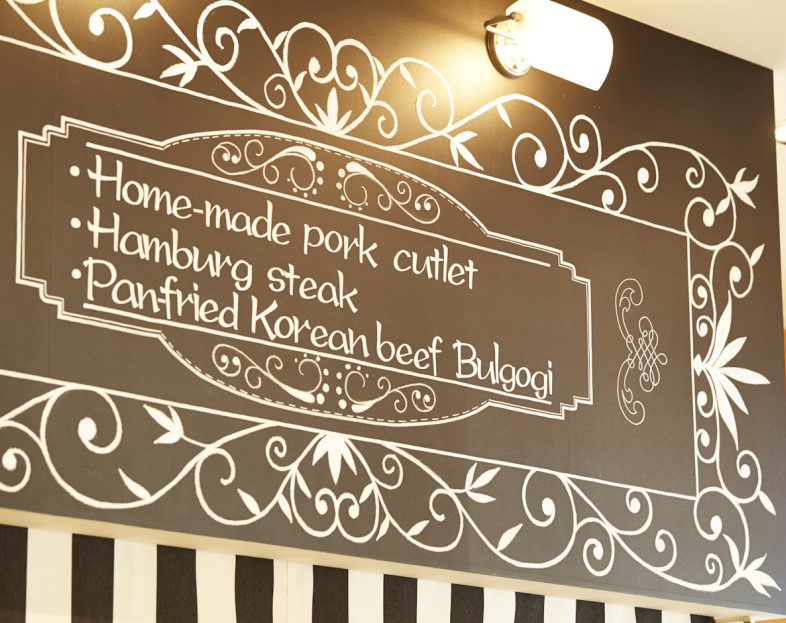 • Home-made pork cutlet
• Hamburg steak
• Pan-fried Korean beef Bulgogi